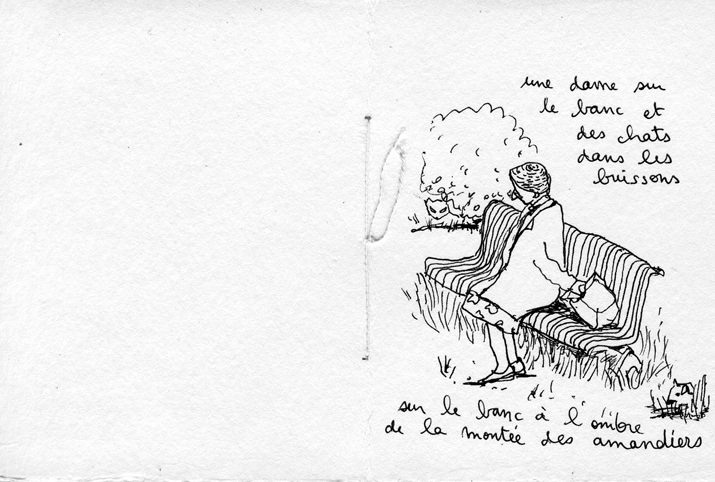 une dame sur
le banc et
des chats
dans les
buissons
sur le banc à l'ombre
de la montée des amandiers